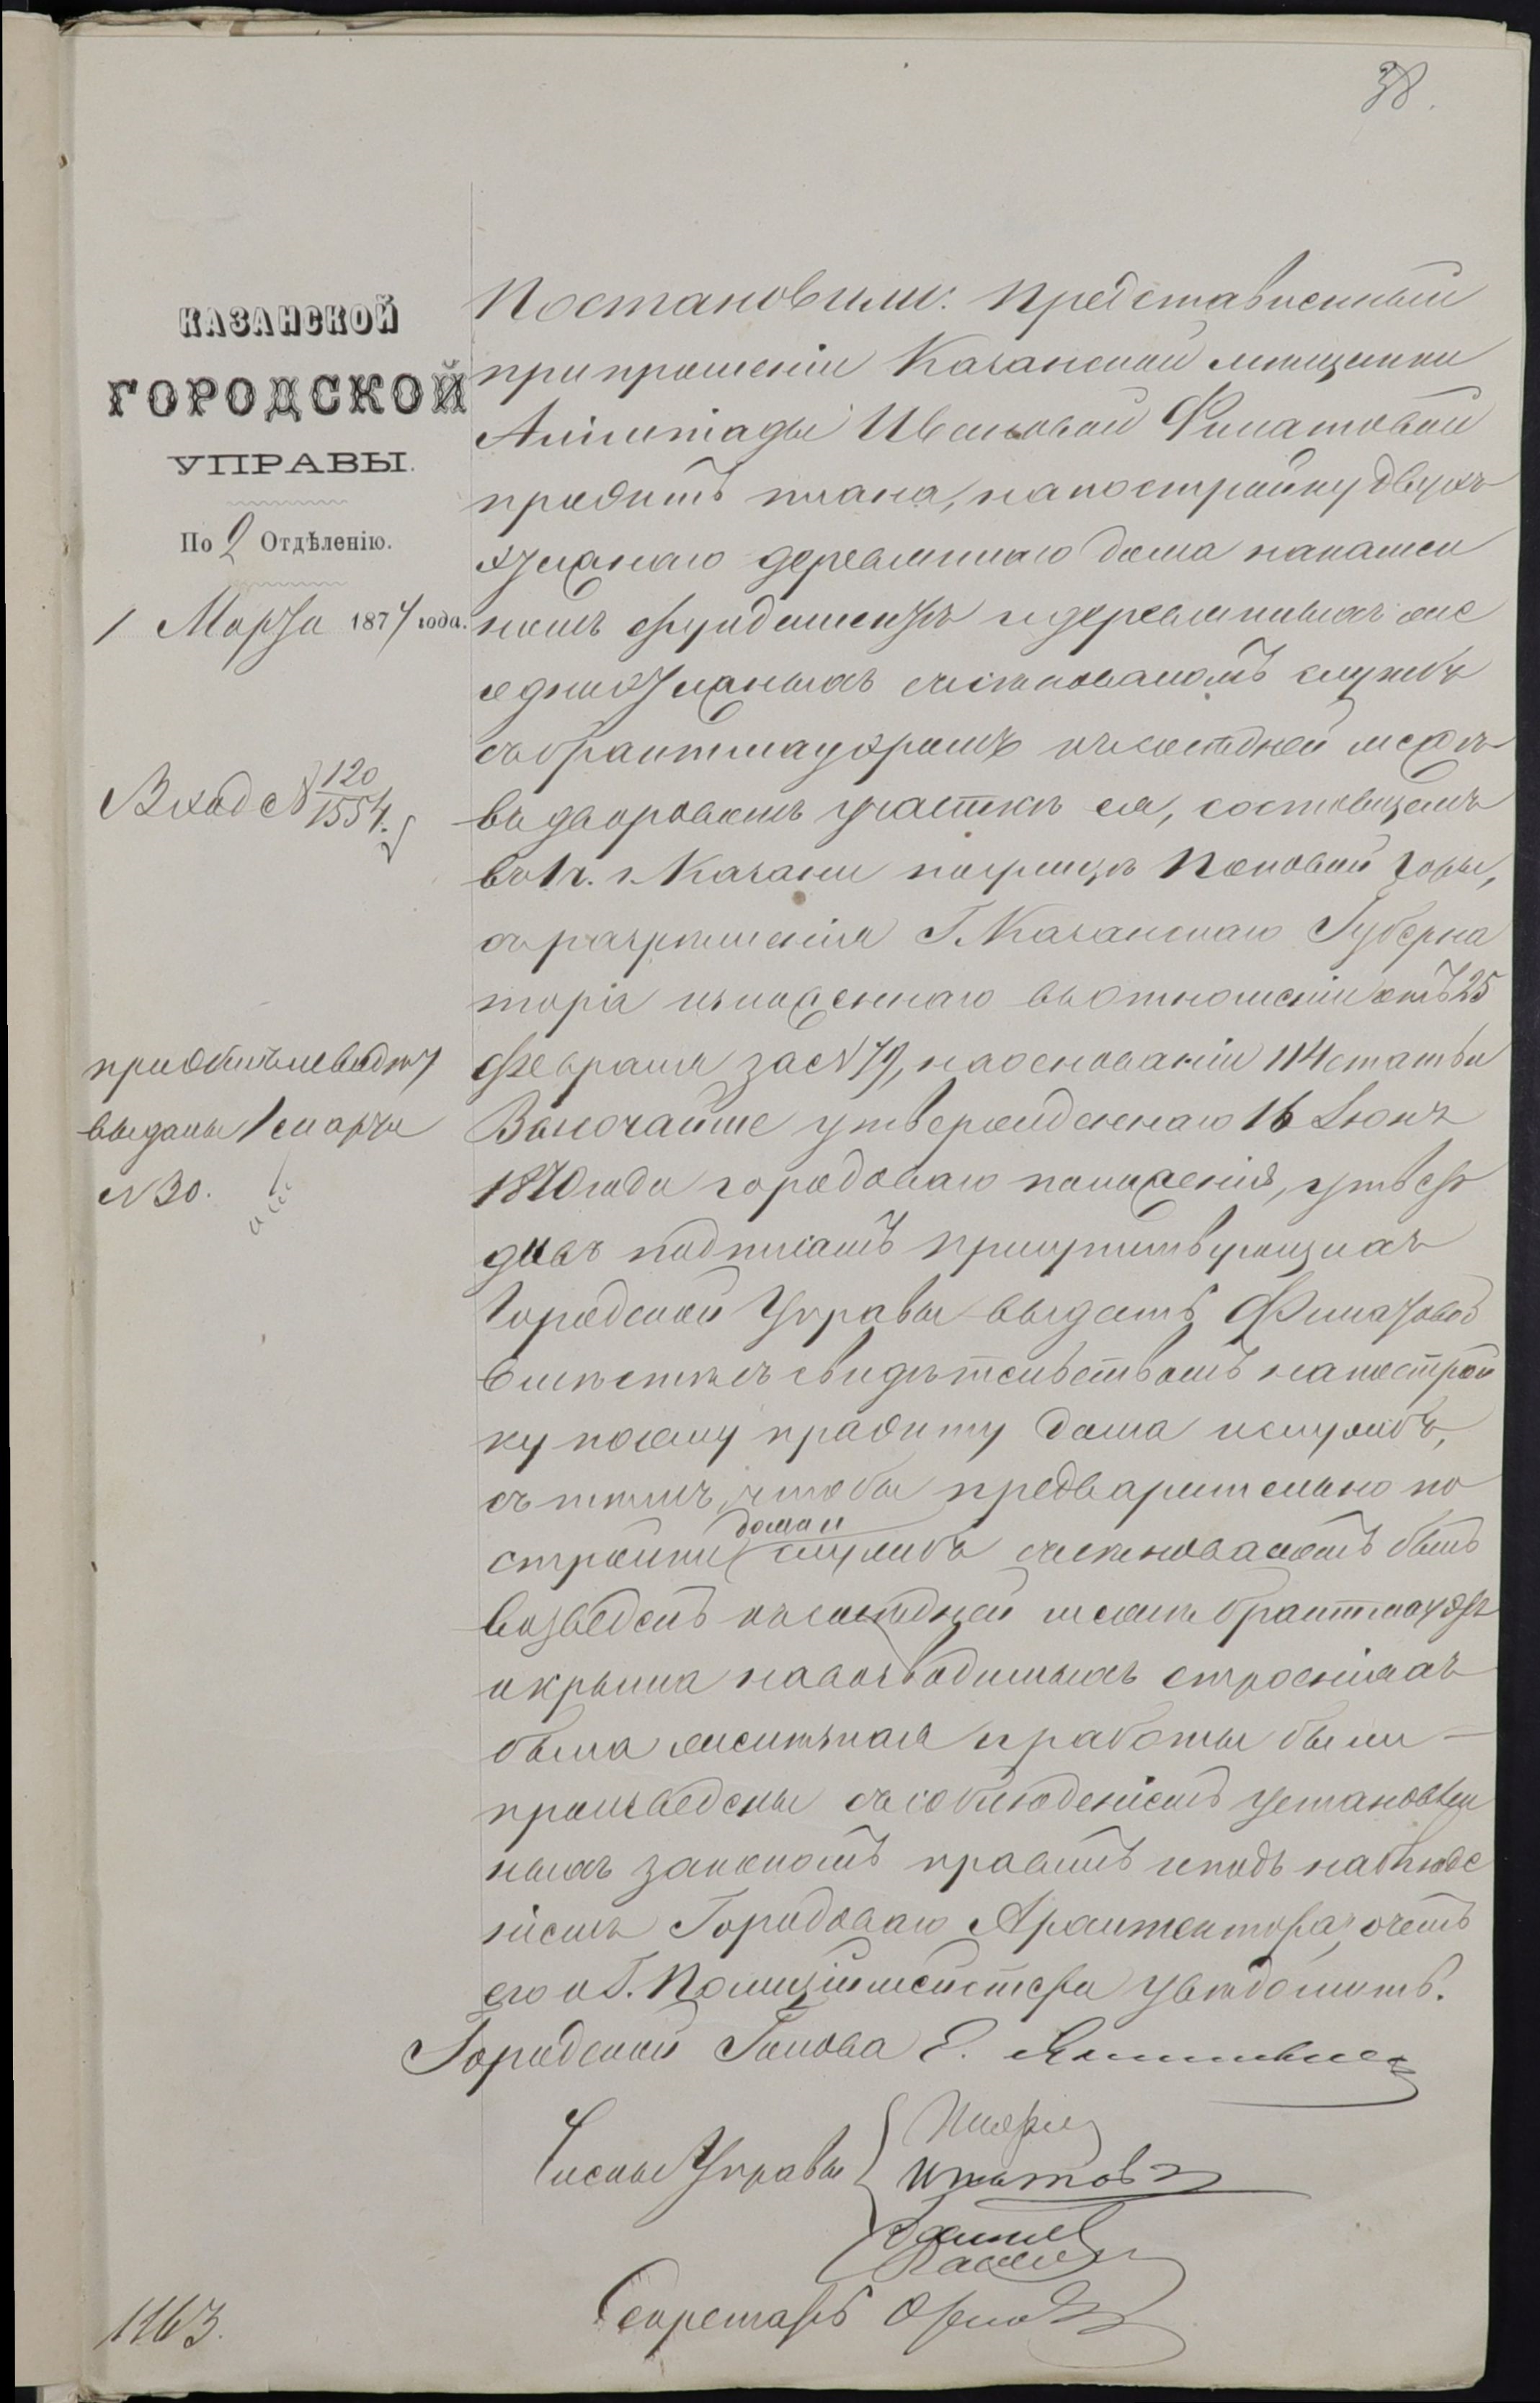 38.
КАЗАНСКОЙ
ГОРОДСКОЙ
УПРАВЫ.
По 2 Отдѣленію.
1 Марта 1874 года.
Вход № 120/1554.
выданы 1 марта
№ 30.
Постановили: представленный
при прошеніи Казанской мѣщанки
Ивановой Филатовой
проэктъ плана, на постройку двухъ
этажнаго деревяннаго дома на камен
номъ фундаментѣ и деревянныхъ же
одноэтажныхъ съ сѣноваломъ службъ
съ брантмауэромъ къ сосѣдней межѣ
въ дворовомъ участкѣ ея, состоящемъ
въ 1 ч. г. Казани по улицѣ Поповой горы,
съ разрѣшенія Г. Казанскаго Губерна
тора изложеннаго въ отношеніи отъ 25
Февраля за № 79, на основаніи 114 статьи
Высочайше утвержденнаго 16 Іюня
1870 года городоваго положенія, утвер
дивъ подписомъ присутствующихъ
Городской Управы выдать Филатовой
вмѣстѣ съ свидѣтельствомъ на построй
ку по сему проэкту дома и службъ,
съ тѣмъ, чтобы предварительно по
стройки дома и службъ съ сѣноваломъ былъ
возведенъ къ сосѣдней межѣ брантмауэръ
и крыша на возводимыхъ строеніяхъ
была желѣзная и работы были
произведены съ соблюденіемъ установлен
ныхъ закономъ правилъ и подъ наблюде
ніемъ Городоваго Архитектора, о чемъ
его и Г. Полиціймейстера увѣдомить.
Городской Голова Е.
Члены Управы
Ипатовъ
Секретарь Орловъ
1163.